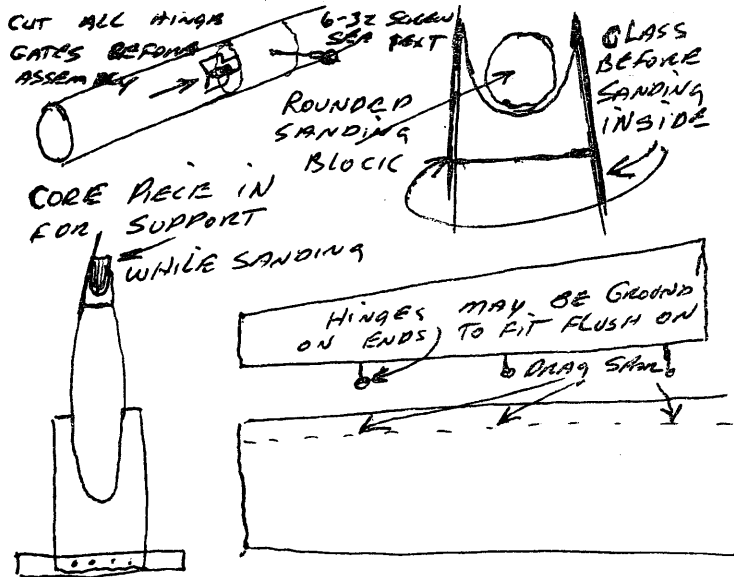 CUT ALL HINGE
GATES BEFORE
ASSEMBLY
6-32 SCREW
SEE TEXT
GLASS
BEFORE
SANDING
INSIDE
ROUNDED
SANDING
BLOCK
CORE PIECE IN
FOR SUPPORT
WHILE SANDING
HINGES MAY BE GROUND
ON ENDS TO FIT FLUSH ON
DRAG SPAR